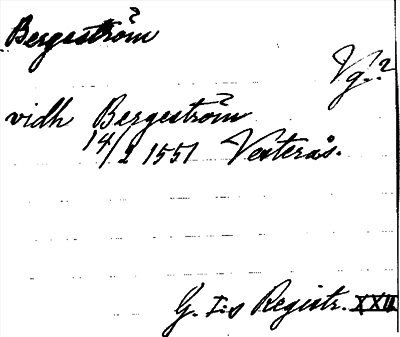 Bergeström
Vg.?
vidh Bergeström
14/2 1551 Vesterås.
G. I:s Registr. XXII